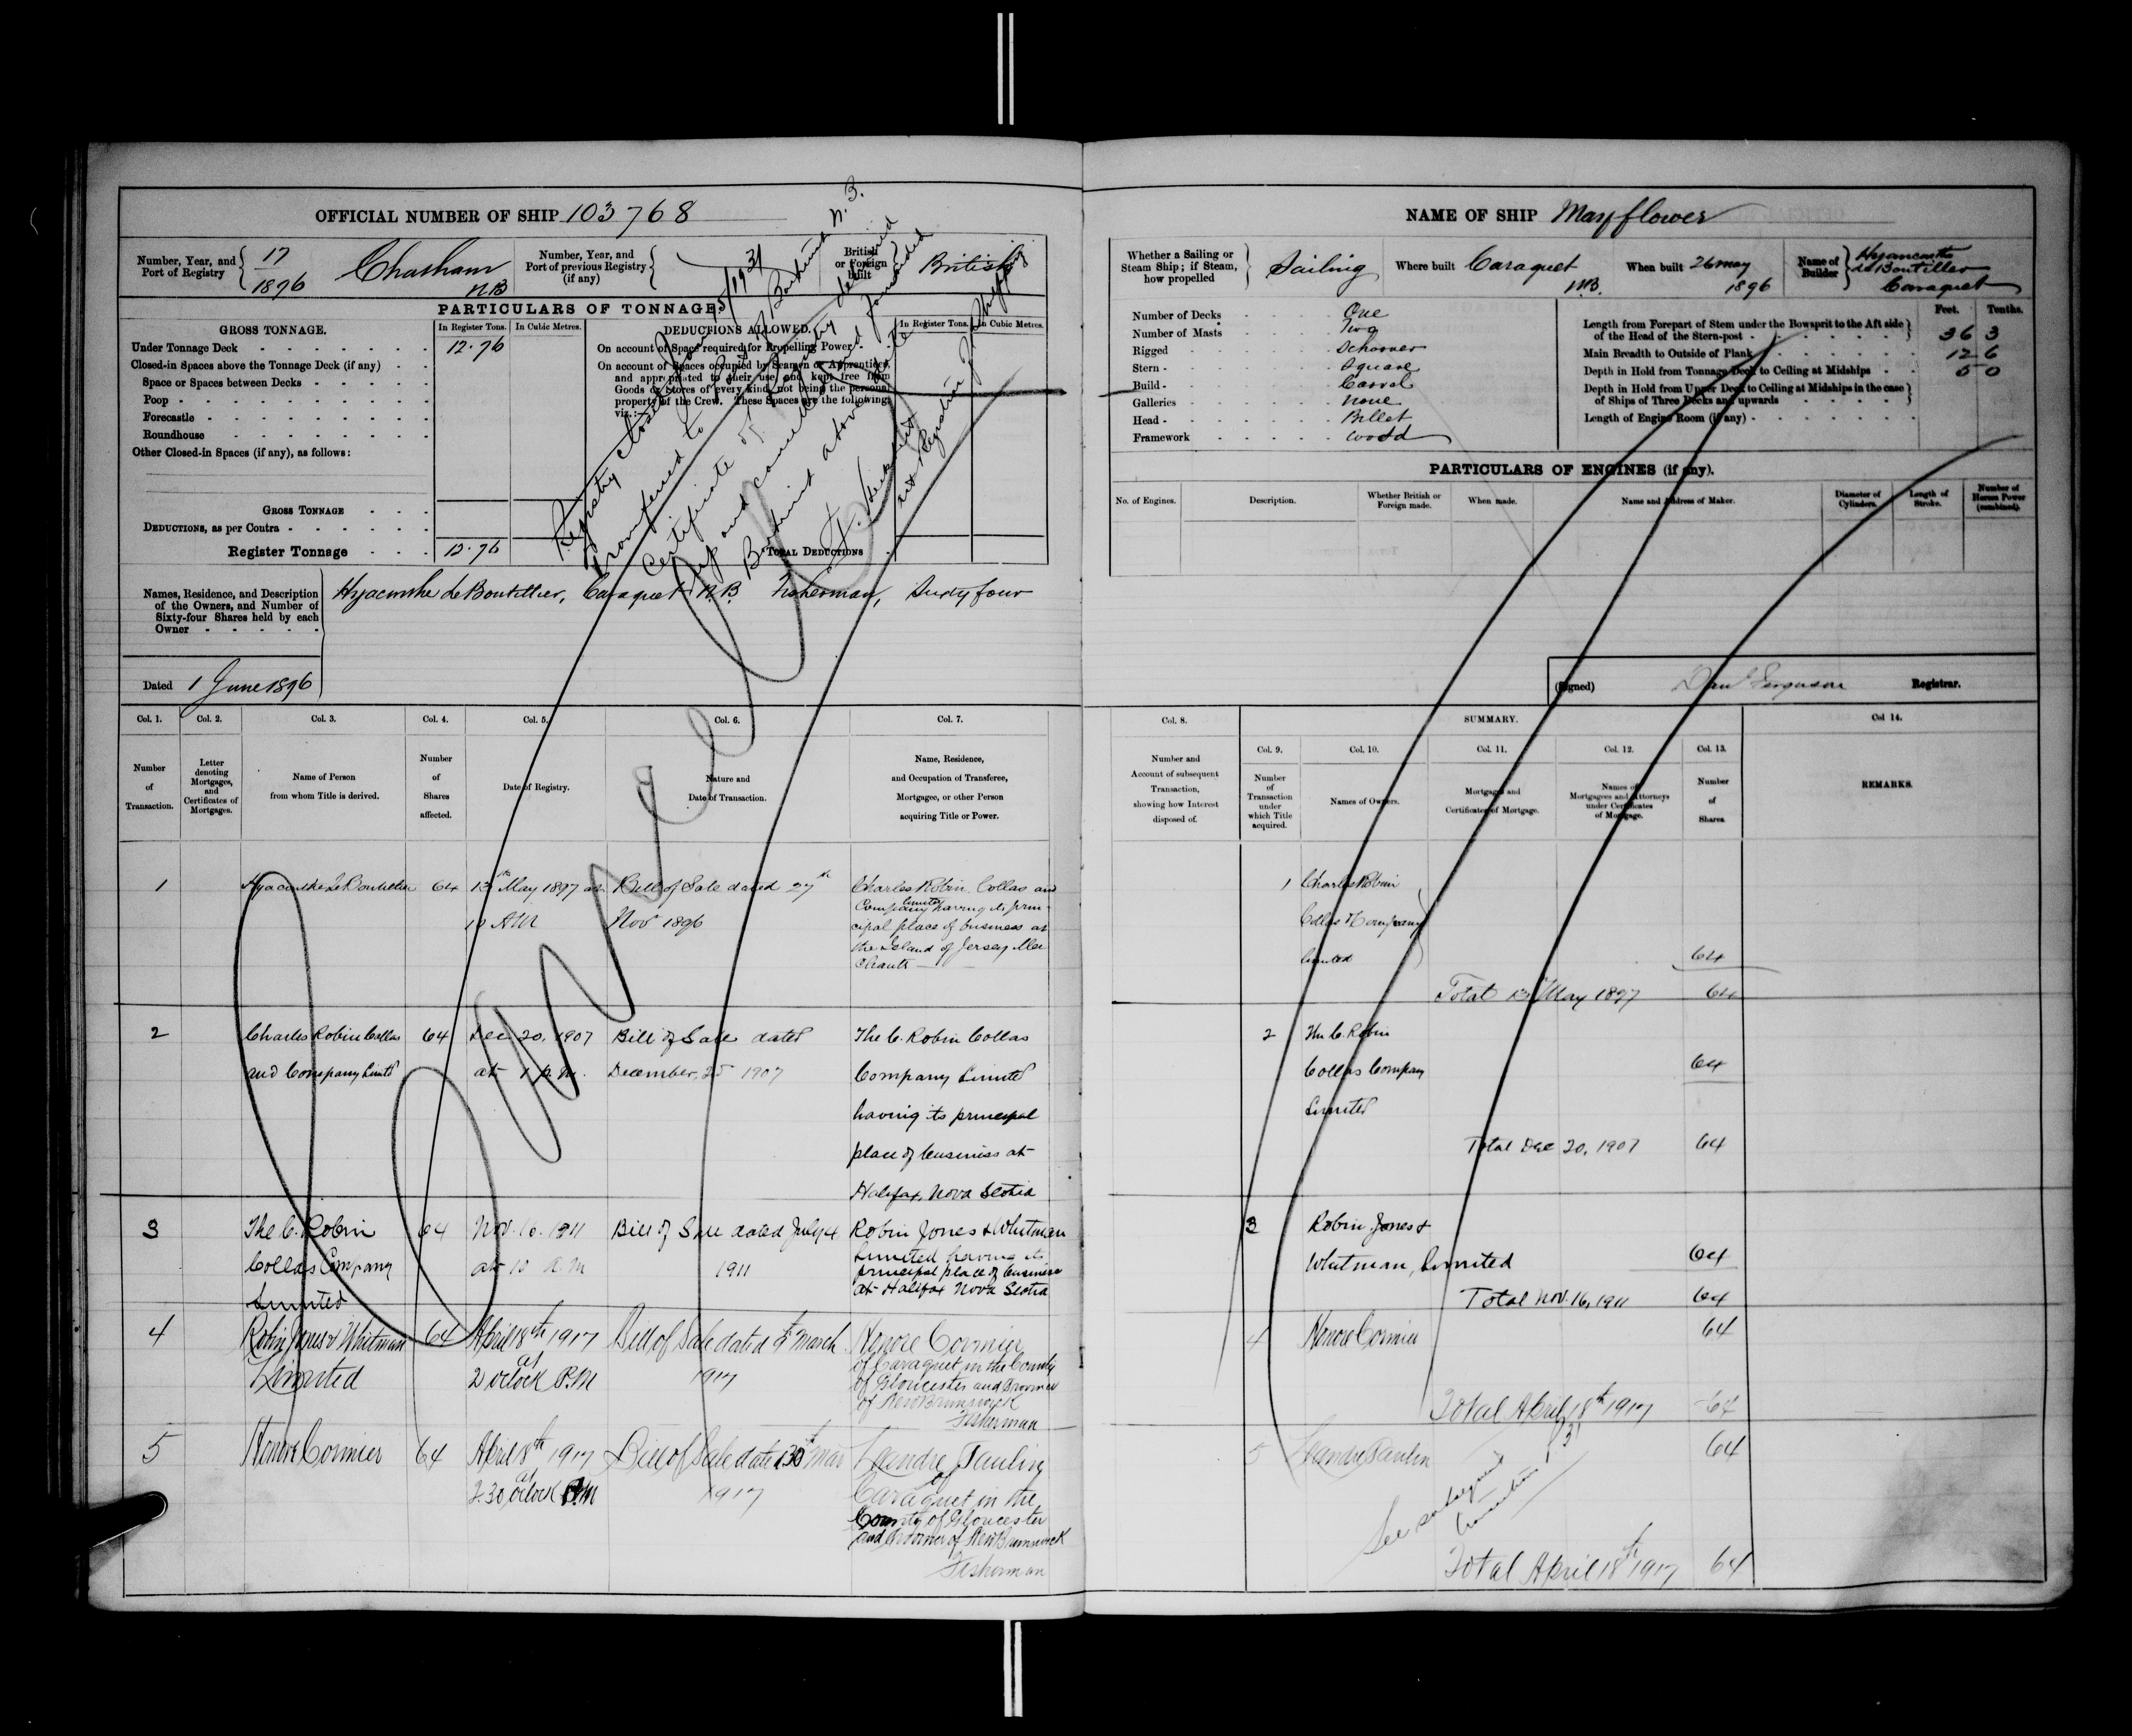 OFFICIAL NUMBER OF SHIP 103768
Number, Year, and
Port of Registry
17
1896
Chatham
N.B
Number, Year, and
Port of previous Registry
(if any)
British
or Foreign
built
British
PARTICULARS OF TONNAGE.
GROSS TONNAGE.
In Register Tons.
In Cubic Metres.
DEDUCTIONS ALLOWED.
In Register Tons.
In Cubic Metres.
Under Tonnage Deck
12.76
Closed-in Spaces above the Tonnage Deck (if any)
Space or Spaces between Decks
Poop
Forecastle
Roundhouse
Other Closed-in Spaces (if any), as follows:
On account of Space required for Propelling Power
On account of Spaces occupied by Seamen or Apprentices,
and appropriated to their use, and kept free from
Goods or Stores of every kind, not being the personal
property of the Crew. These Spaces are the following,
viz.:—
GROSS TONNAGE
DEDUCTIONS, as per Contra
Register Tonnage
12.76
TOTAL DEDUCTIONS
Registry closed
Transferred to Port of
Certificate of Registry delivered
up and cancelled
Names, Residence, and Description
of the Owners, and Number of
Sixty-four Shares held by each
Owner
Hyacinthe LeBoutillier, Caraquet N.B. Fisherman, Sixty four
Dated 1 June 1896
Col. 1.
Col. 2.
Col. 3.
Col. 4.
Col. 5.
Col. 6.
Col. 7.
Number
of
Transaction.
Letter
denoting
Mortgages,
and
Certificates of
Mortgages.
Name of Person
from whom Title is derived.
Number
of
Shares
affected.
Date of Registry.
Nature and
Date of Transaction.
Name, Residence,
and Occupation of Transferee,
Mortgagee, or other Person
acquiring Title or Power.
1
Hyacinthe LeBoutillier
64
13th May 1897 at
10 AM
Bill of Sale dated 27th
Nov 1896
Charles Robin Collas and
Company limited having its prin-
cipal place of business at
the Island of Jersey Mer
chants
2
Charles Robin Collas
and Company Limited
64
Dec. 20, 1907
at 1 p.m.
Bill of Sale dated
December, 25 1907
The C. Robin Collas
Company Limited
having its principal
place of business at
Halifax, Nova Scotia
3
The C. Robin
Collas Company
Limited
64
Nov. 16. 1911
at 10 a.m
Bill of Sale dated July 4
1911
Robin Jones & Whitman
Limited having its
principal place of business
at Halifax Nova Scotia
4
Robin Jones & Whitman
Limited
64
April 18th 1917
at
2 o'clock P.M
Bill of Sale dated March
1917
Honore Cormier
of Caraquet in the County
of Gloucester and Province
of New Brunswick
Fisherman
5
Honore Cormier
64
April 18th 1917
at
2.30 o'clock P.M
Bill of Sale dated 30th Mar
1917
Leandre Paulin
of
Caraquet in the
County of Gloucester
and Province of New Brunswick
Fisherman
Cancelled
NAME OF SHIP Mayflower
Whether a Sailing or
Steam Ship; if Steam,
how propelled
Sailing
Where built
Caraquet
N.B.
When built
26 May
1896
Name of
Builder
Hyancinthe
LeBoutillier
Caraquet
Number of Decks
One
Number of Masts
Two
Rigged
Schooner
Stern
Square
Build
Carvel
Galleries
None
Head
Billet
Framework
Wood
Feet.
Tenths.
Length from Forepart of Stem under the Bowsprit to the Aft side
of the Head of the Stern-post
36 3
Main Breadth to Outside of Plank
12 6
Depth in Hold from Tonnage Deck to Ceiling at Midships
5 0
Depth in Hold from Upper Deck to Ceiling at Midships in the case
of Ships of Three Decks and upwards
Length of Engine Room (if any)
PARTICULARS OF ENGINES (if any).
No. of Engines.
Description.
Whether British or
Foreign made.
When made.
Name and Address of Maker.
Diameter of
Cylinders.
Length of
Stroke.
Number of
Horses Power
(combined).
(Signed) Danl Ferguson Registrar.
Col. 8.
SUMMARY.
Col 14.
Number and
Account of subsequent
Transaction,
showing how Interest
disposed of.
Col. 9.
Col. 10.
Col. 11.
Col. 12.
Col. 13.
Number
of
Transaction
under
which Title
acquired.
Names of Owners.
Mortgages and
Certificates of Mortgage.
Names of
Mortgagees and Attorneys
under Certificates
of Mortgage.
Number
of
Shares
REMARKS.
1
Charles Robin
Collas & Company
limited
64
Total 13th May 1897
64
2
The C. Robin
Collas Company
Limited
64
Total Dec 20, 1907
64
3
Robin Jones &
Whitman, Limited
64
Total Nov. 16, 1911
64
4
Honore Cormier
64
Total April 18th 1917
64
5
Leandre Paulin
64
See subsequent
Total April 18th 1917
64